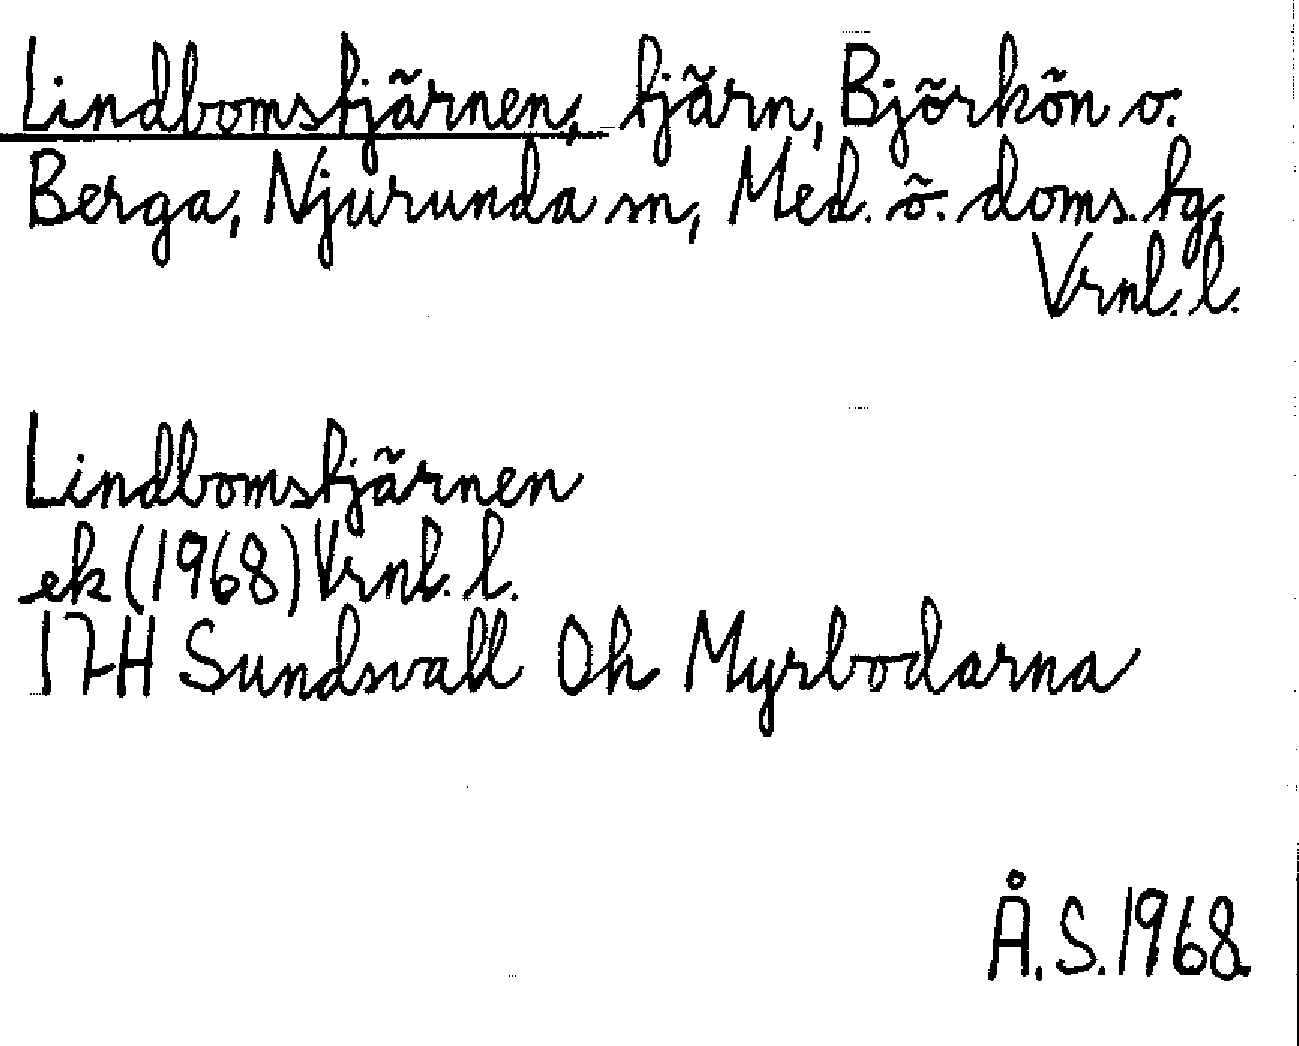 Lindbomstjärnen, tjärn, Björkön o.
Berga, Njurunda sn, Med. ö. doms. tg,
Vrnl. l.
Lindbomstjärnen
ek (1968) Vrnl. l.
17H Sundsvall 0h Myrbodarna
Å. S. 1968.